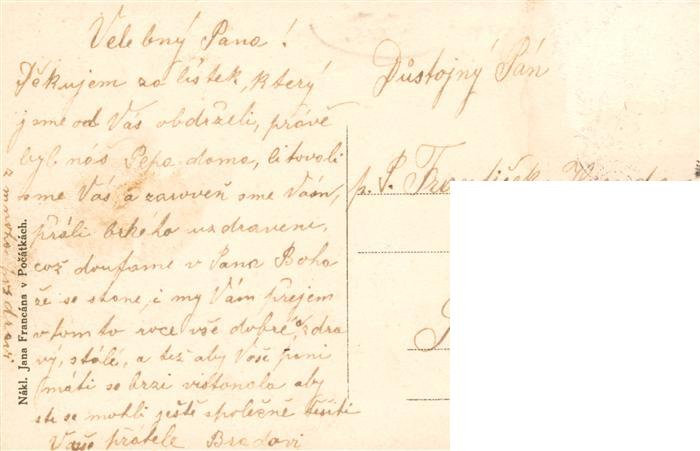 Velebný Pane!
Děkujem za lístek, který
jsme od Vás obdrželi, právě
byl náš Pepa doma, litovali
sme Vás, a zároveň sme Vám,
přáli brkého uzdravení,
což doufáme v Pana Boha
že se stane, i my Vám přejem
v tom to roce vše dobré, zdra
vý, stálé, a též aby Vaše paní
máti se brzi vistonala aby
ste se mohli ještě společně těšiti
Vaše přátele Bradovi
Důstojný Pán
p. P. František
Nákl. Jana Francána v Počátkách.